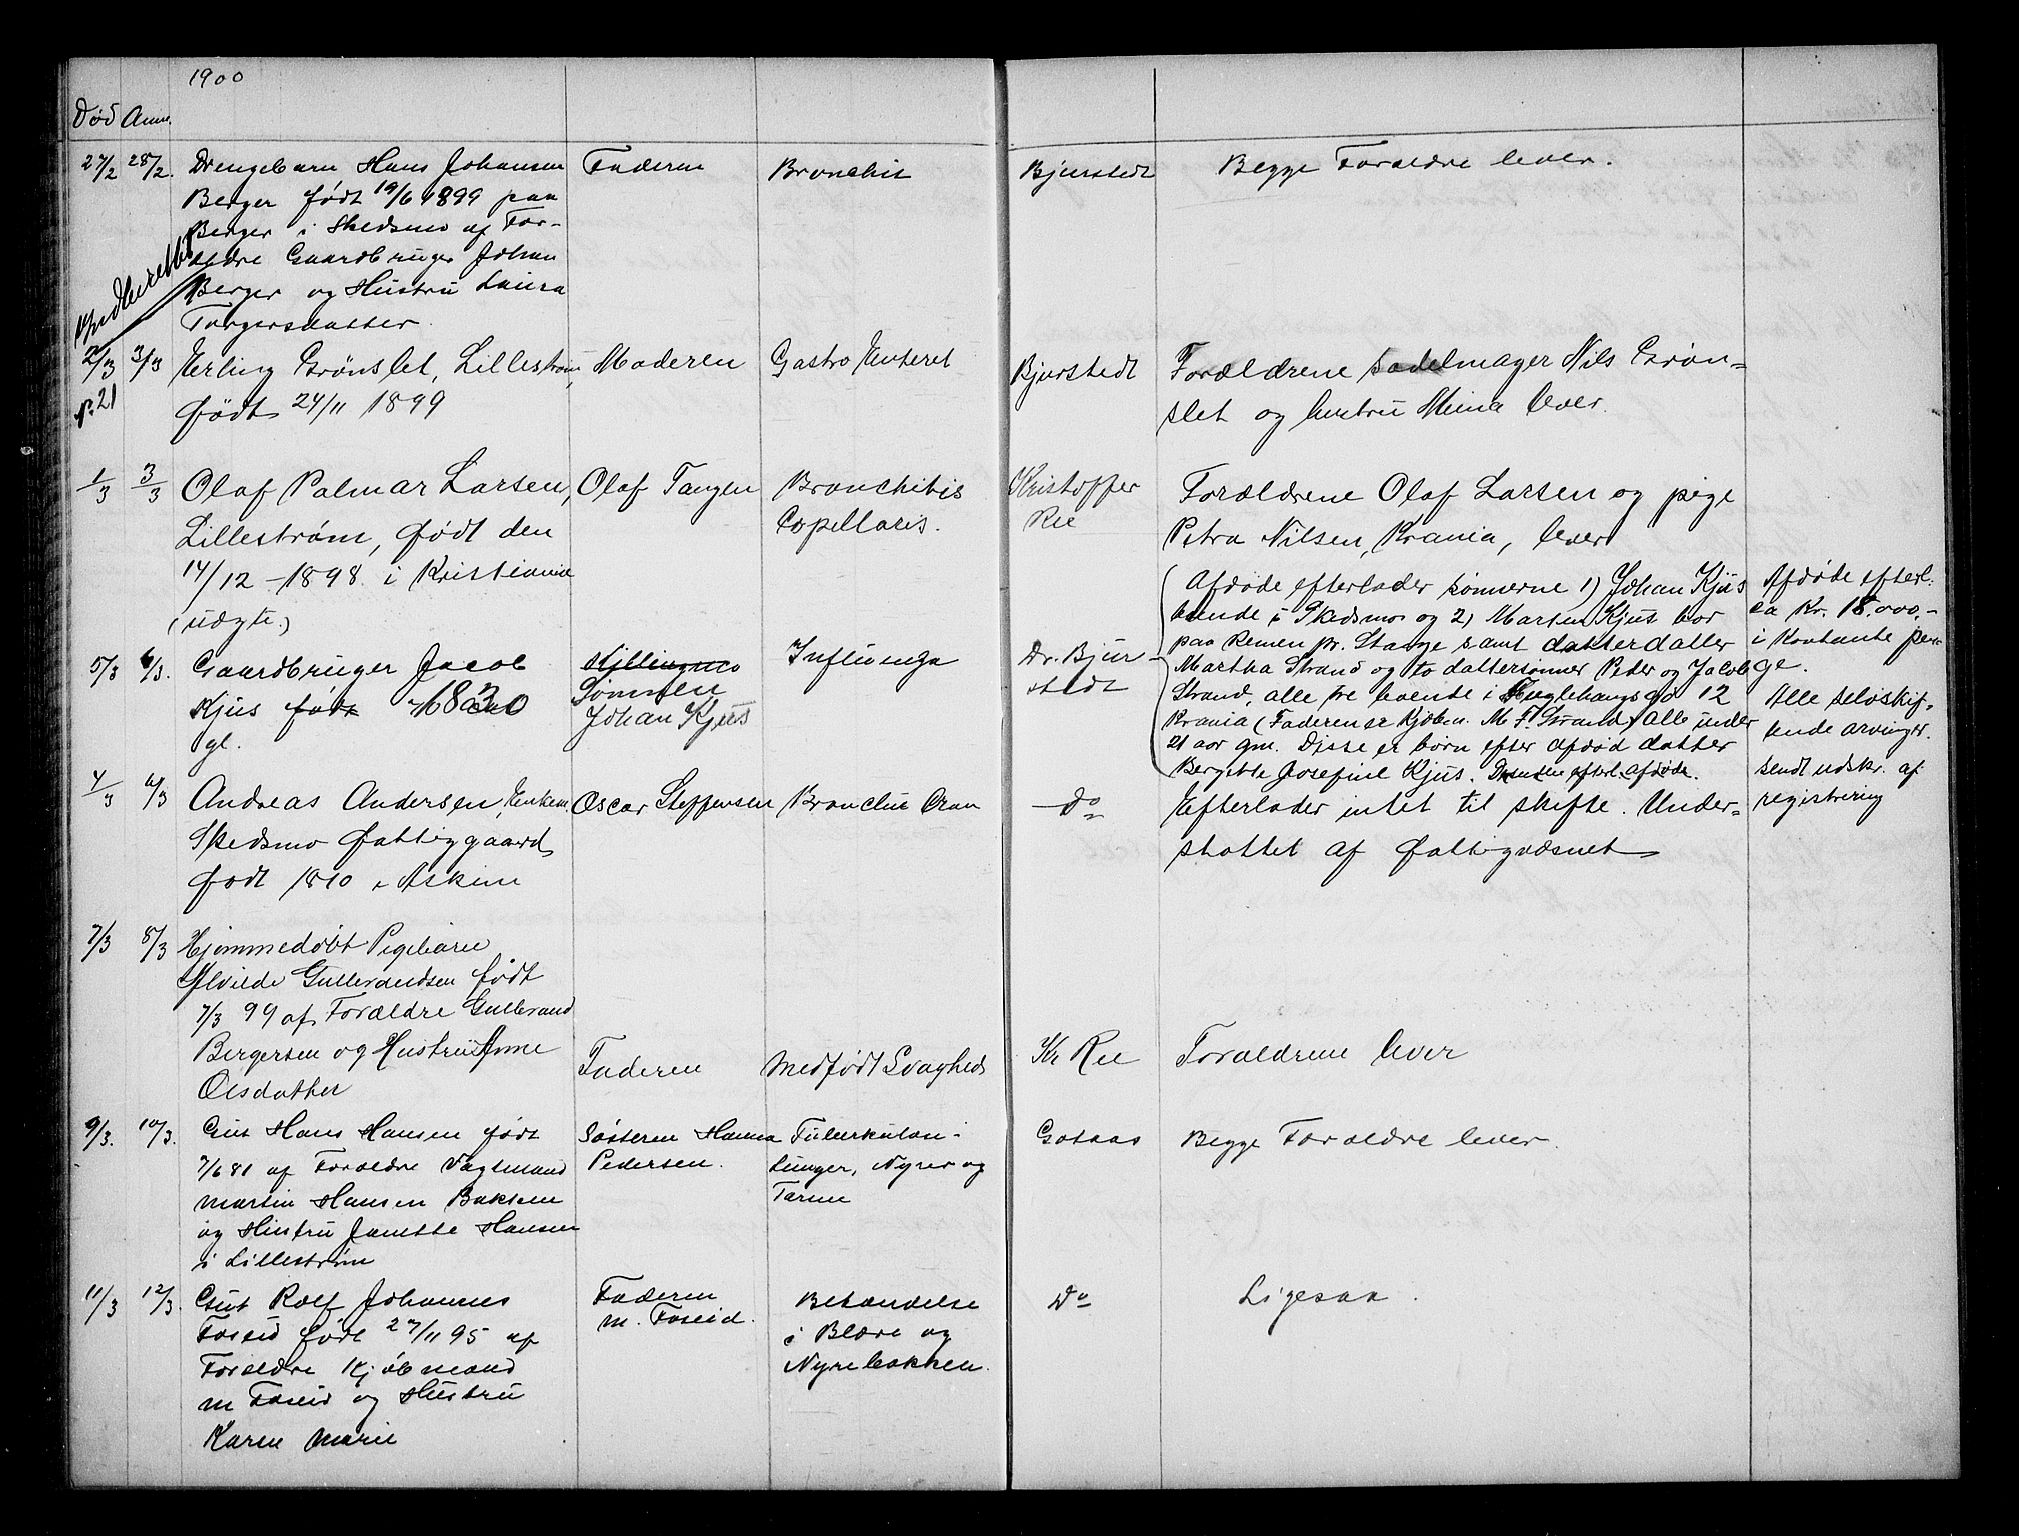 1900
Død Anm.
27/2 28/2. Drengebarn Hans Johansen Faderen Bronchit Bjurstedt Begge Forældre lever.
Berger født 19/6 1899 paa
Berger i Skedsmo af For-
ældre Gaardbruger Johan
Berger og Hustru Laura
Torgersdatter.
2/3 3/3 Erling Grønslet, Lillestrøm, Moderen Gastro Enterit Bjurstedt Forældrene Sadelmager Nils Grøn-
P. 21 født 24/11 1899 slet og hustru Mina lever.
1/3 3/3 Olaf Palmar Larsen, Olaf Tangen Bronchitis Kristoffer Forældrene Olaf Larsen og pige
Lillestrøm, født den Capellaris. Ree Petra Nilsen, Krania, lever
14/12 - 1898. i Kristiania
(uægte.)
5/3 6/3. Gaardbruger Jacob Sønnen Influenza Dr. Bjur-
Kjus født 1820 Johan Kjus stedt
gl.
Afdøde efterlader sønnerne 1) Johan Kjus
boende i Skedsmo og 2) Martin Kjus bor
paa Remen pr. Stange samt datterdatter
Martha Strand og to dattersønner Peder og Jacob
Strand, alle tre boende i Fuglehaugsgd 12
Krania (Faderen er Kjøbm. M. F. Strand) alle under
21 aar gm. Disse er børn efter afdød datter
Bergitte Josefine Kjus. efterl. afdøde.
Afdøde efterl.
ca Kr. 18.000,-
i Kontante pen-
ge.
Alle selvskif-
tende arvinger.
Sendt udskr. af
registrering
4/3 6/3 Andreas Andersen, Enkem. Oscar Steffensen Bronchit Cron Do Efterlader intet til skifte. Under-
Skedsmo Fattiggaard støttet af Fattigvæsnet
født 1810 i Askim
7/3 8/3 Hjemmedøbt Pigebarn
Alvilde Gulbrandsen født
7/3 99 af Forældre Gulbrand
Bergersen og Hustru Anne Faderen Medfødt Svaghed Kr Ree Forældrene lever
Olsdatter
9/3. 10/3. Gut Hans Hansen født Søsteren Hanna Tuberkulose i Gotaas Begge Forældre lever.
7/6 81 af Forældre Vagtmand Pedersen. Lunger, Nyrer og
Martin Hansen Bakken Tarme
og Hustru Janette Hansen
i Lillestrøm
11/3 12/3. Gut Rolf Johannes Faderen Betændelse Do Ligesaa.
Foseid født 27/11 95 af M. Foseid. i Blære og
Forældre Kjøbmand Nyrebækken.
M Foseid og Hustru
Karen Marie